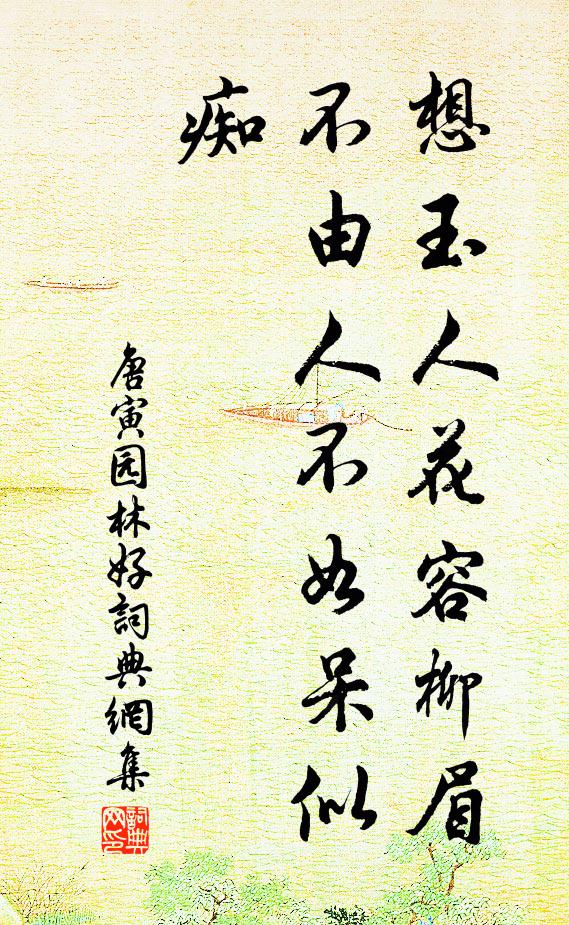 想玉人花容柳眉
不由人不如呆似
痴
唐寅园林好詞典網集
詞典网印